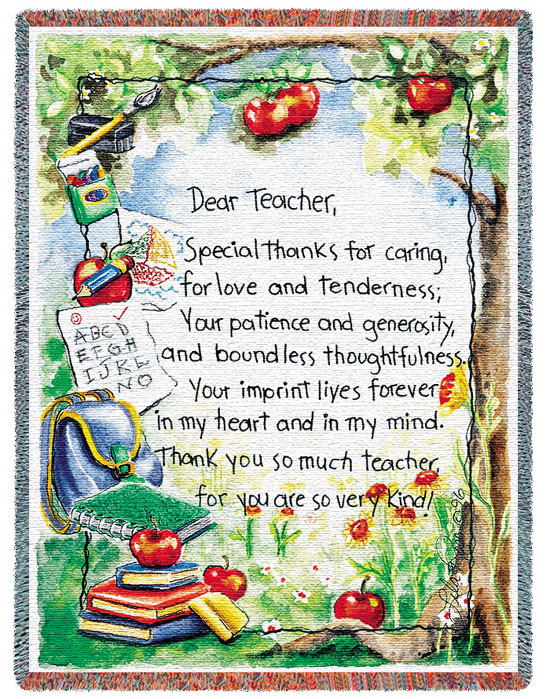 Dear Teacher,
Special thanks for caring,
for love and tenderness;
Your patience and generosity,
and boundless thoughtfulness.
Your imprint lives forever
in my heart and in my mind.
Thank you so much teacher,
for you are so very kind!
ABCD
EFGH
IJKL
NO
©96